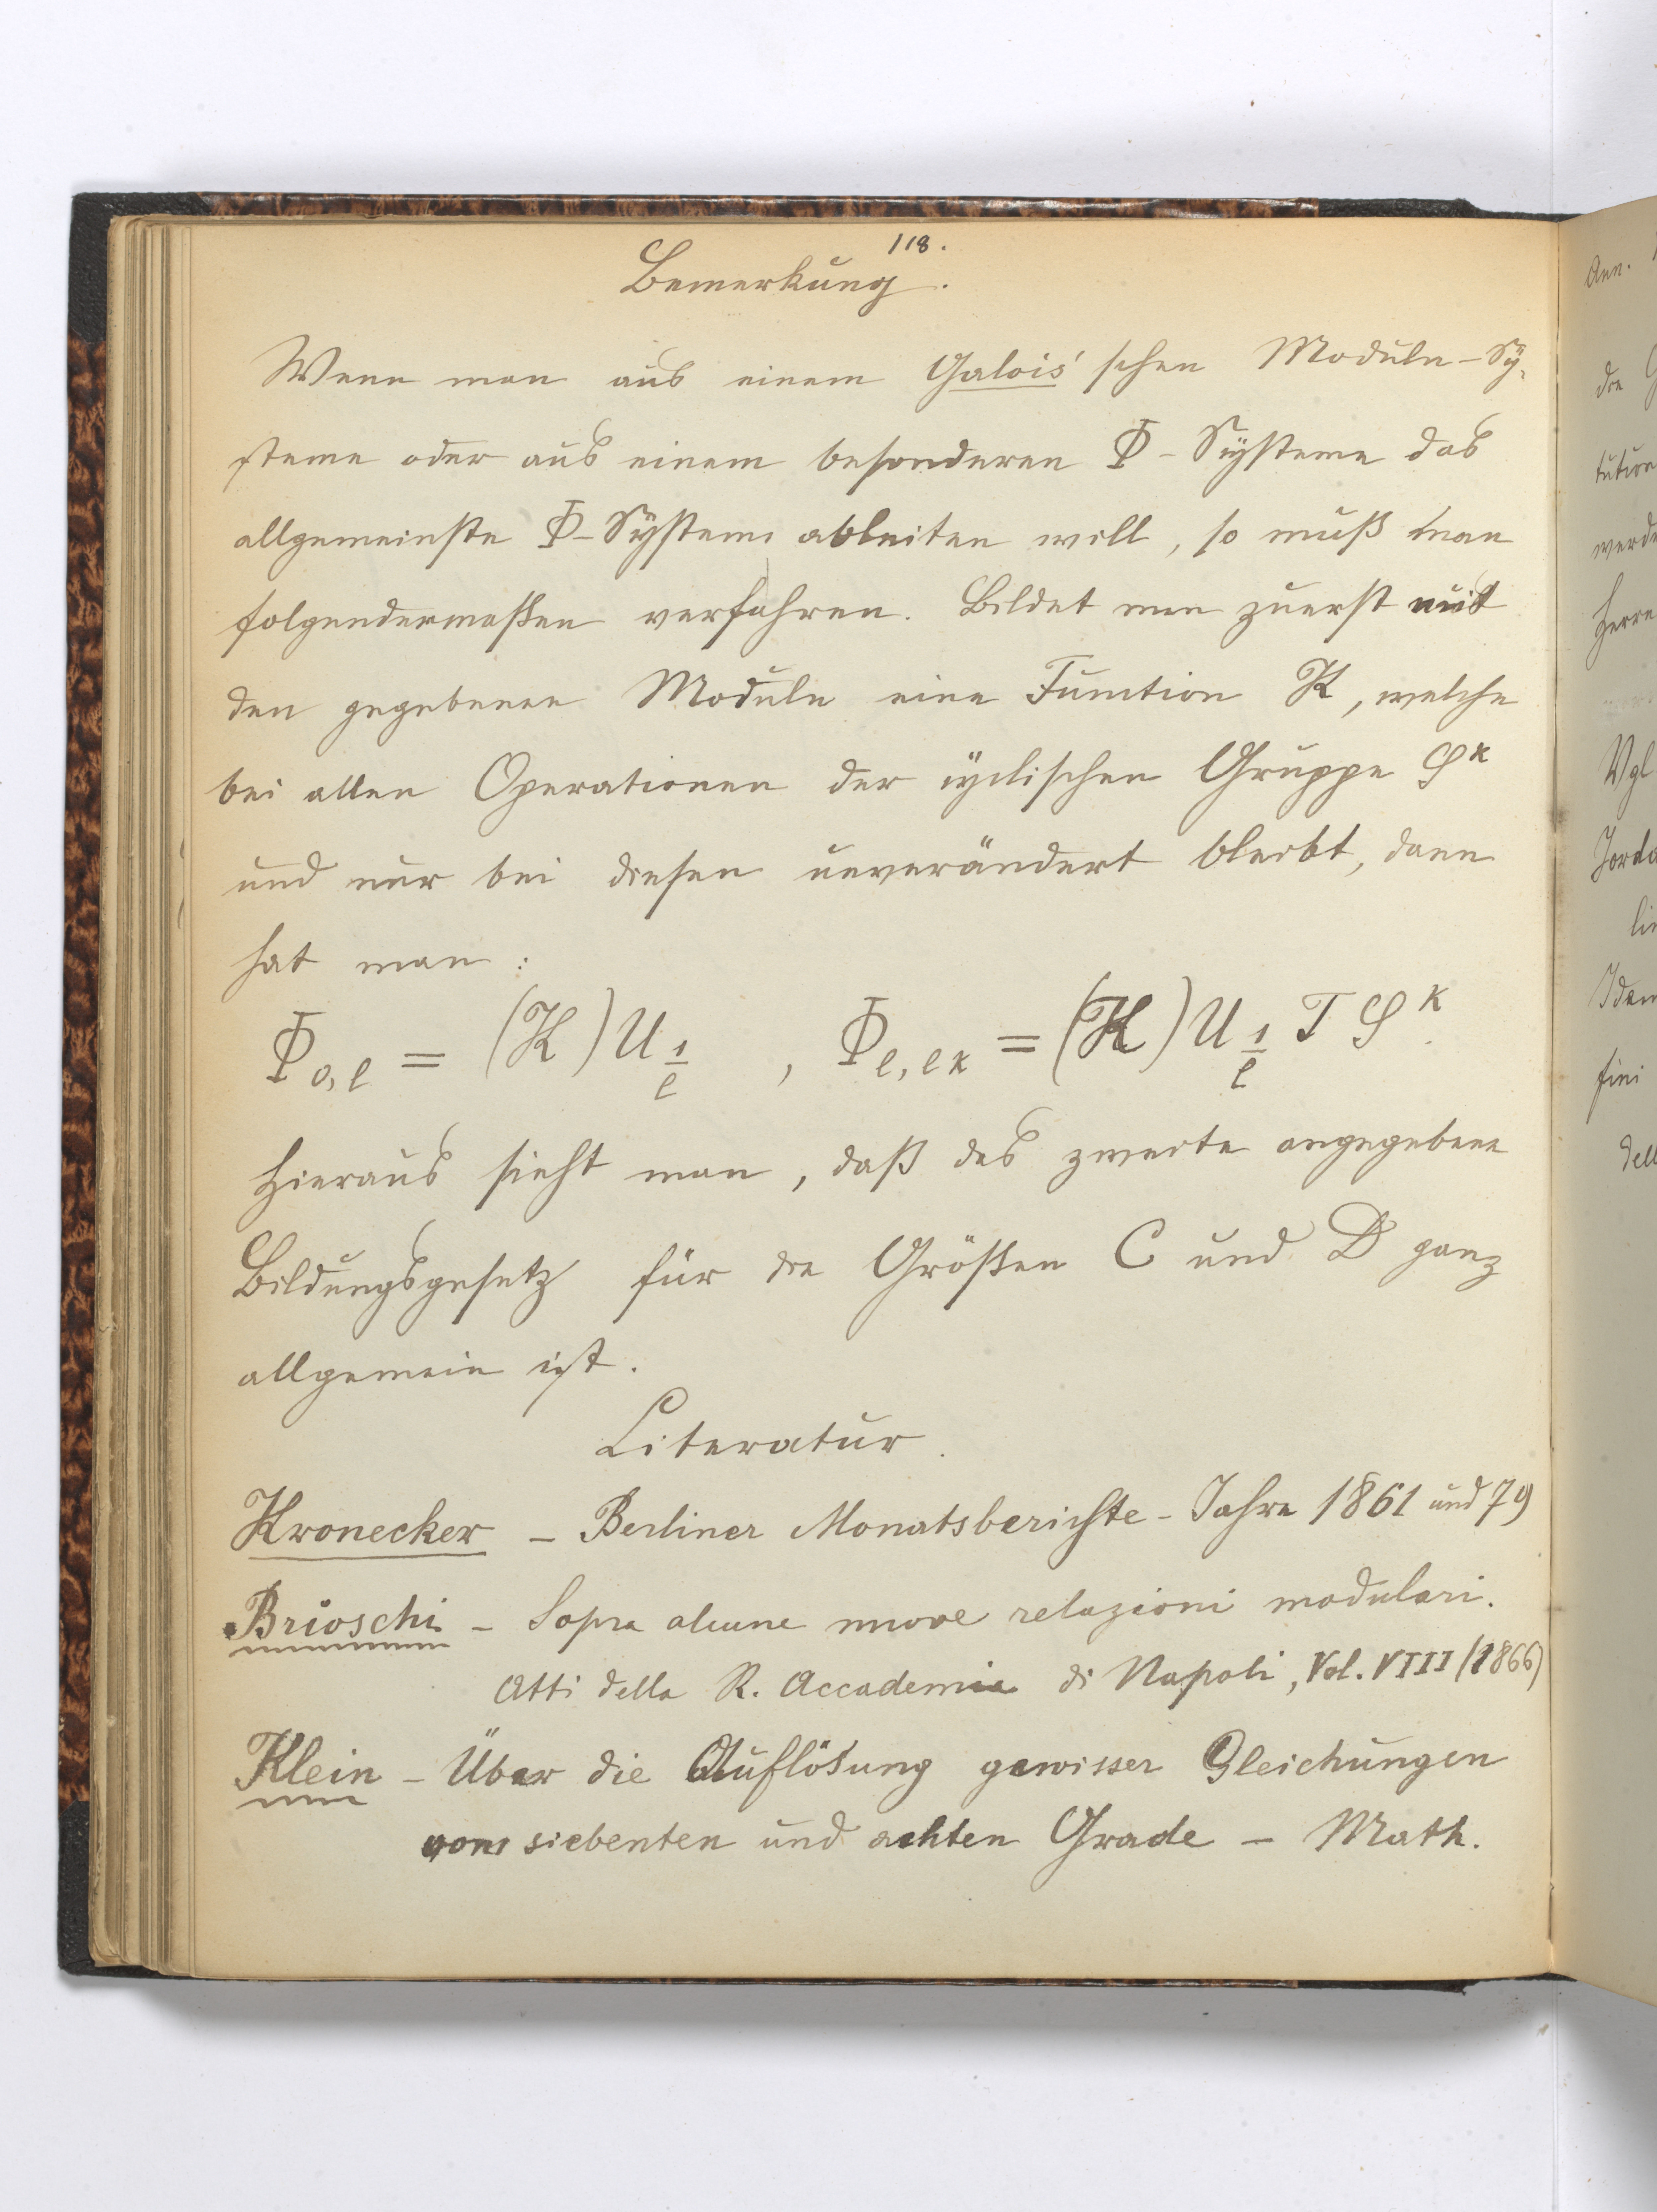 118.
Bemerkung.
Wenn man aus einem Galois'schen Moduln-Sy-
steme oder aus einem besonderen Φ-Systeme das
allgemeinste Φ-System ableiten will, so muß man
folgendermaßen verfahren. Bildet man zuerst mit
den gegebenen Moduln eine Function K, welche
bei allen Operationen der cyclischen Gruppe S^k
und nur bei diesen unverändert bleibt, dann
hat man:
Φ_{0,l} = (K) U_{1/l} , Φ_{l,lk} = (K) U_{1/l} T S^k.
Hieraus sieht man, daß das zweite angegebene
Bildungsgesetz für die Größen C und D ganz
allgemein ist.
Literatur.
Kronecker – Berliner Monatsberichte – Jahre 1861 und 79
Brioschi – Sopra alcune nuove relazioni modulari.
Atti della R. Accademia di Napoli, Vol. VIII (1866)
Klein – Über die Auflösung gewisser Gleichungen
vom siebenten und achten Grade – Math.
Ann.
die
werde
Vgl
Idem
fini
dell